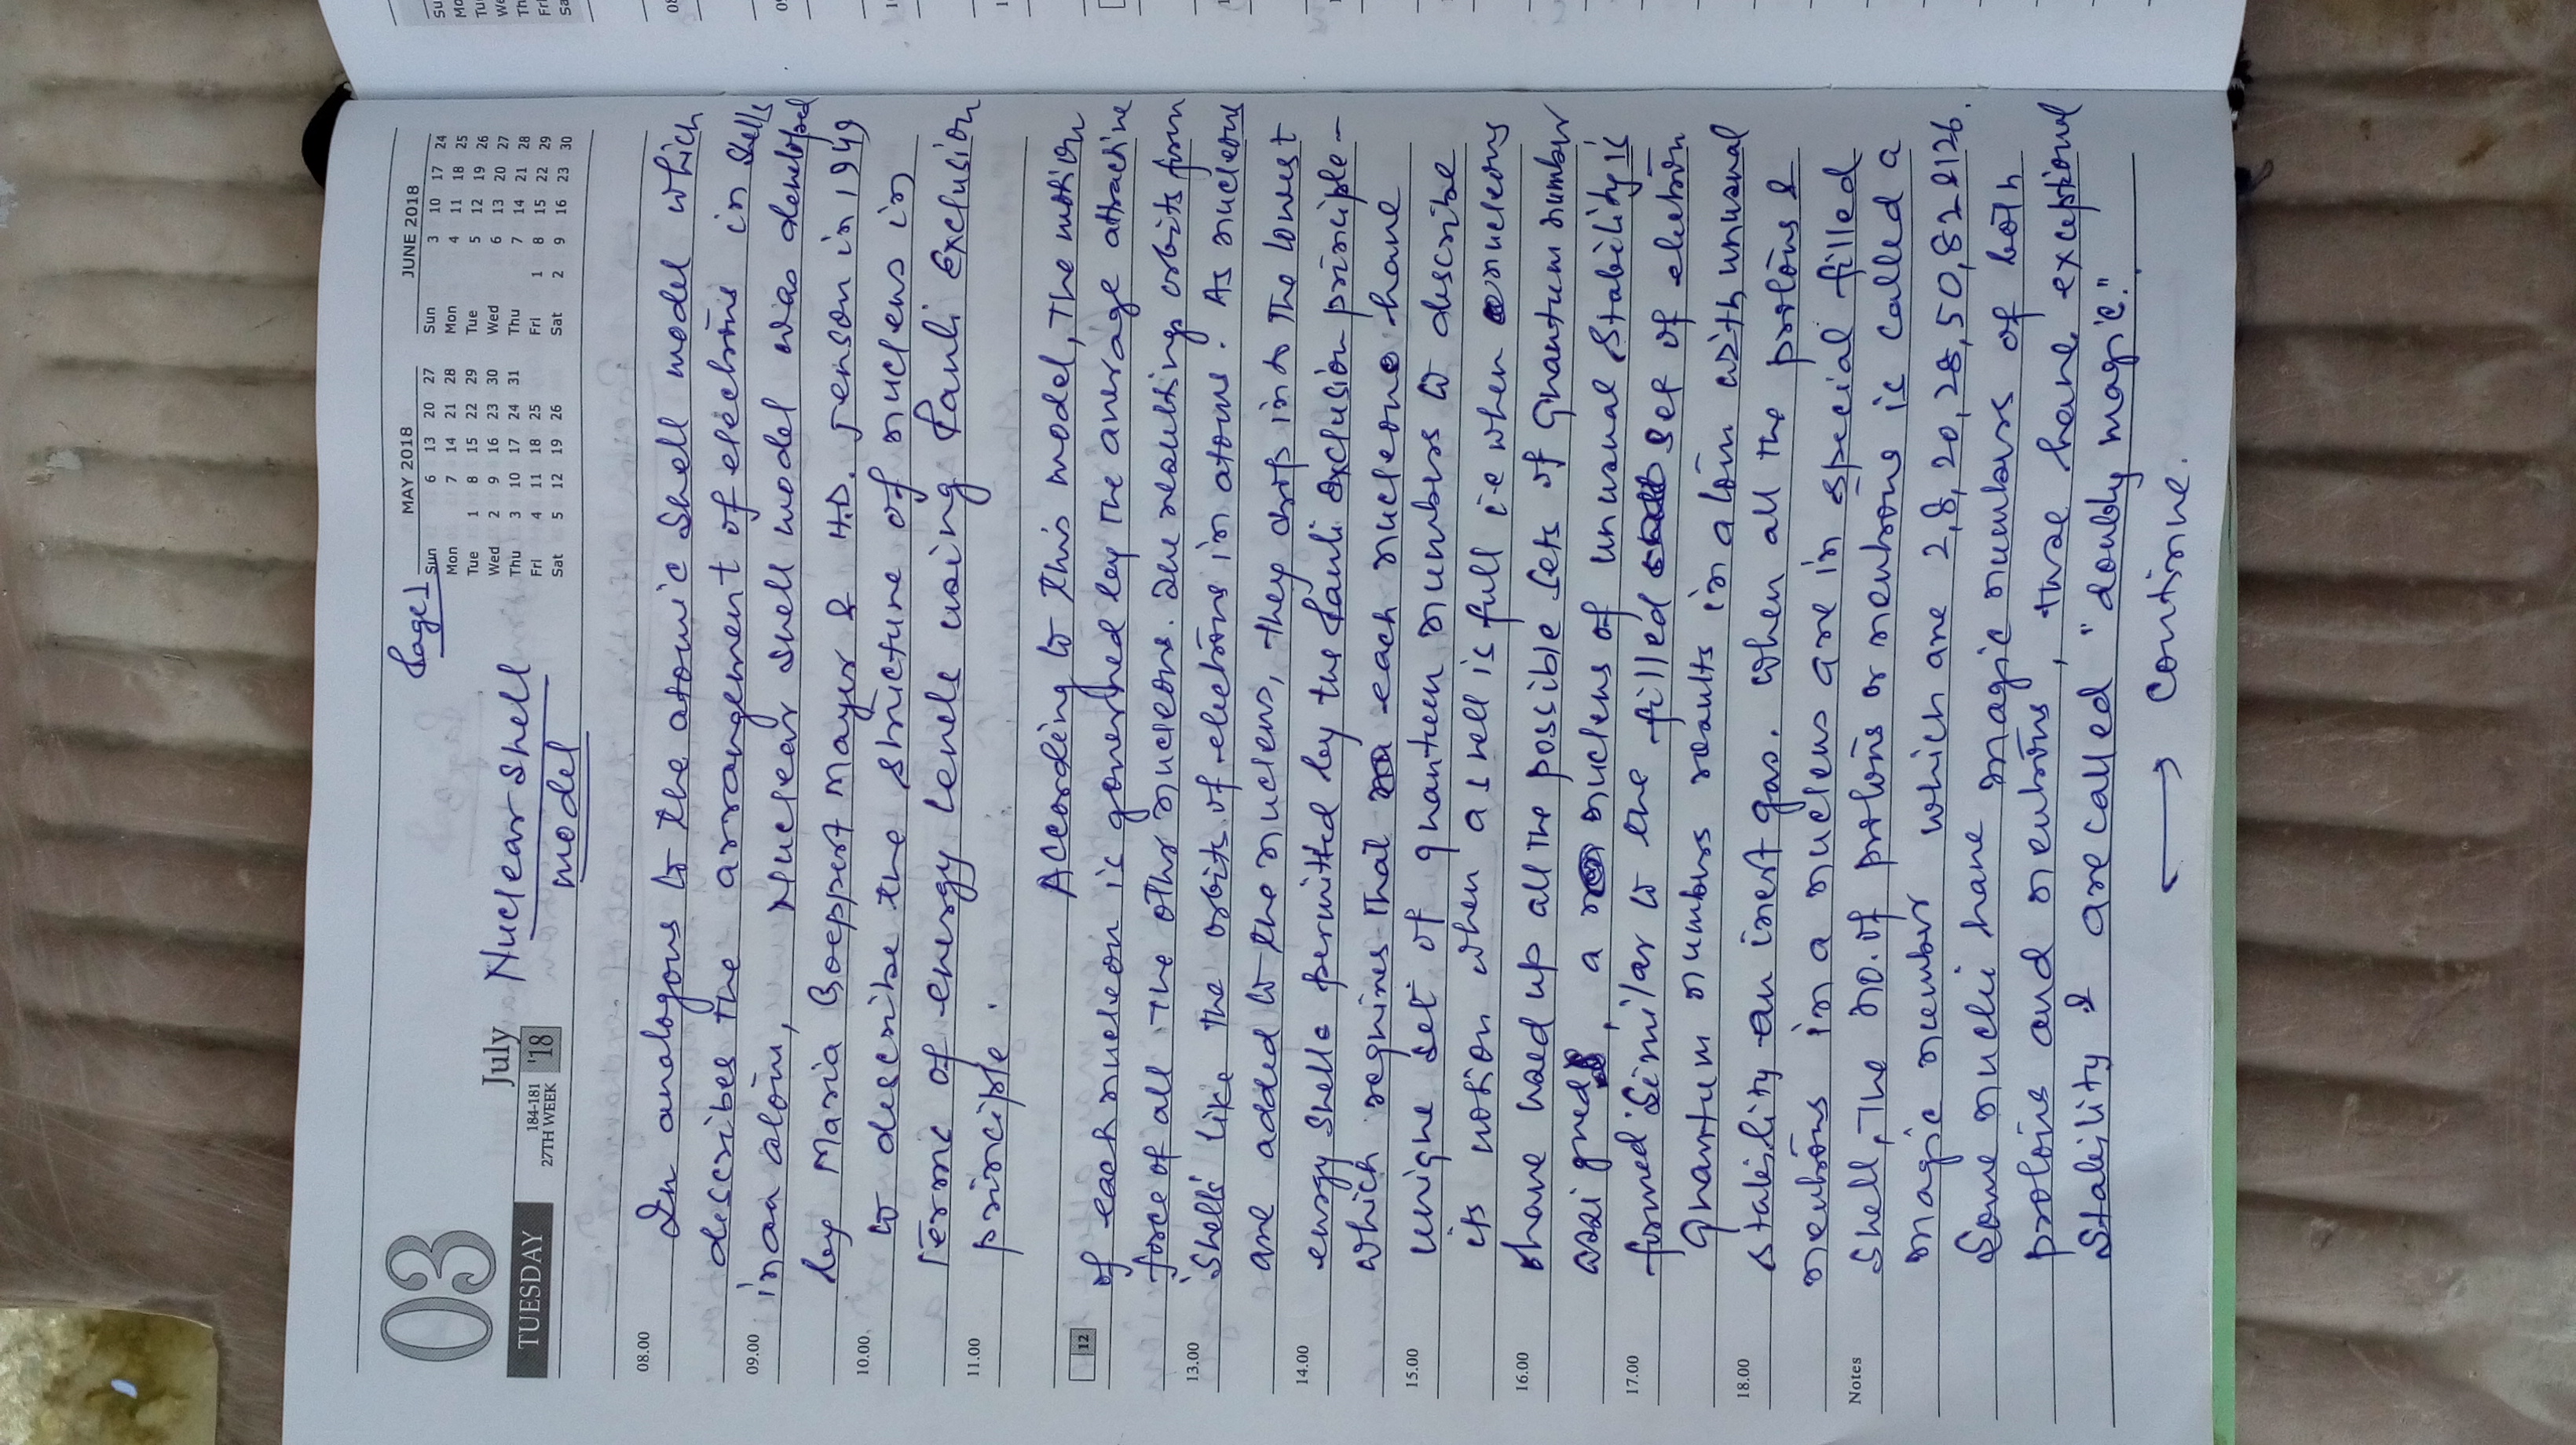 Page 1
MAY 2018
Sun 6 13 20 27
Mon 7 14 21 28
Tue 1 8 15 22 29
Wed 2 9 16 23 30
Thu 3 10 17 24 31
Fri 4 11 18 25
Sat 5 12 19 26
JUNE 2018
Sun 3 10 17 24
Mon 4 11 18 25
Tue 5 12 19 26
Wed 6 13 20 27
Thu 7 14 21 28
Fri 1 8 15 22 29
Sat 2 9 16 23 30
03
TUESDAY
July
184-181
27TH WEEK
'18
Nuclear Shell
model
08.00
In analogous to the atomic Shell model which
describes the arrangement of elections in shells
09.00
in an atom, Nuclear shell model was developed
by Maria Goeppert mayer & H.D. Jenson in 1949
10.00
to describe the structure of nucleus in
Terms of energy levels using Pauli Exclusion
11.00
principle.
According to this model, The motion
12
of each nucleon is governed by the average attractive
force of all the other nucleons. The resulting orbits form
13.00
'Shells' like the orbits of elections in atoms. As nucleons
are added to the nucleus, they drop into the lowest
14.00
energy shells permitted by the Pauli Exclusion principle-
which requires that each nucleons have
15.00
unique set of quanteen numbers to describe
its motion when a shell is full i.e when nucleons
16.00
have used up all the possible sets of Quantum number
assigned, a nucleus of unusual Stability is
17.00
formed Similar to the filled set of eletron
Quantum numbers results in atom with unusual
18.00
stability an inert gas. when all the protons &
neutrons in a nucleus are in special filled
Notes
Shell, The no. of protons or neutrons is called a
magic number which are 2, 8, 20, 28, 50, 82 & 126.
Some nuclei have magic numbers of both
protons and neutrons, these have exceptional
Stability & are called "doubly magic".
→ Continue.